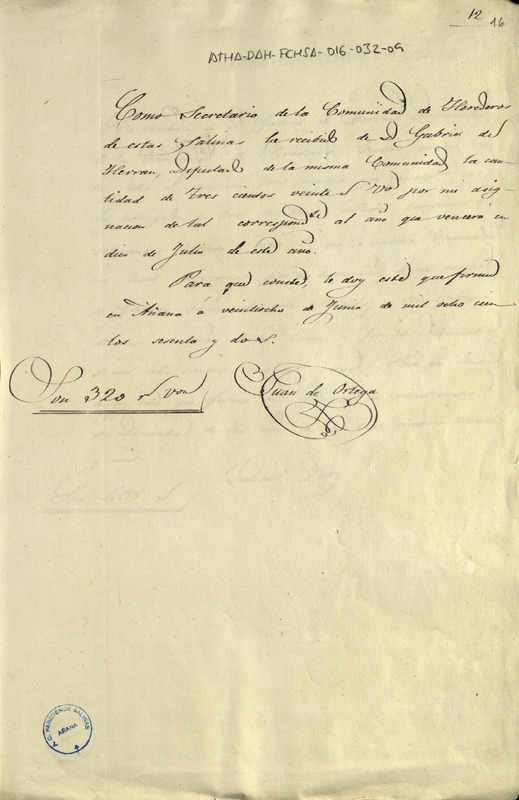 12
16
ATHA-DAH-FCHSA-016-032-09
Como Secretario de la Comunidad de Herederos
de estas Salinas he recibido de D. Gabriel del
Herran, Diputado de la misma Comunidad la can
tidad de tres cientos veinte r.s von por mi asig
nacion de tal correspond.te al año que vencerá en
diez de Julio de este año.
Para que conste, le doy este que firmo
en Añana á veintiocho de Junio de mil ocho cien
tos sesenta y dos.
Son 320 rs von
Juan de Ortega
A.C. HEREDEROS SALINAS
AÑANA